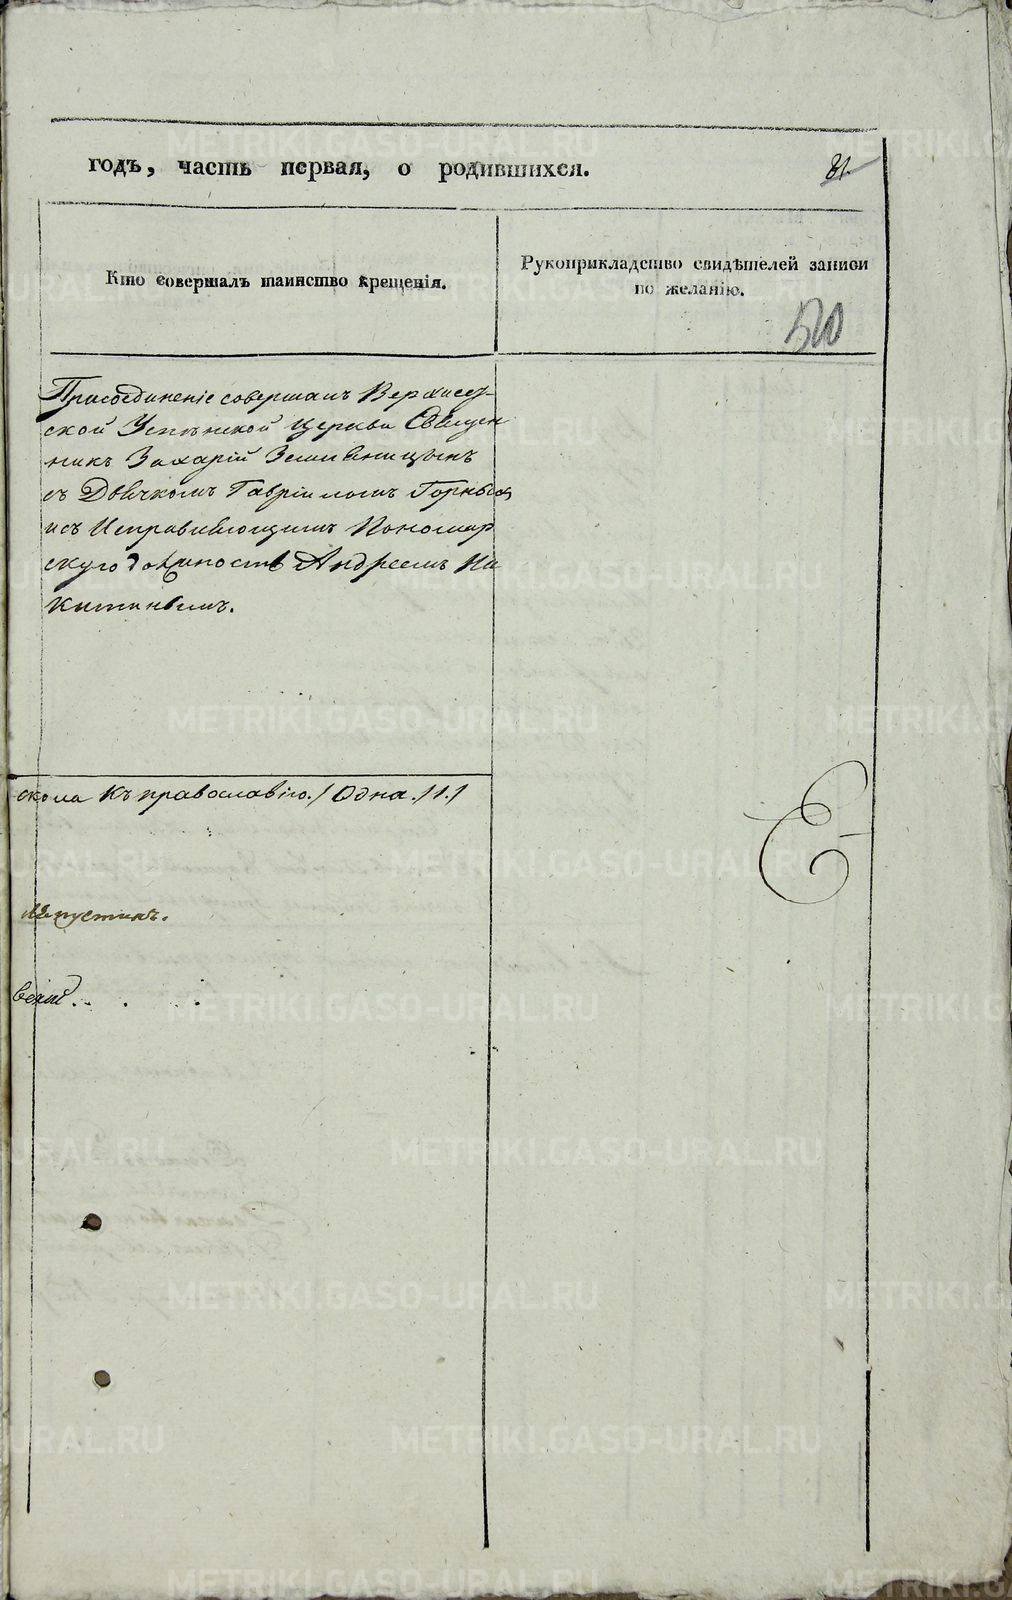 годъ, часть первая, о родившихся.
81.
Кто совершалъ таинство крещенія.
Рукоприкладство свидѣтелей записи
по желанію.
520
Присоединеніе совершалъ Верхисет-
ской Успѣнской Церкви Священ
никъ Захарій
съ Дьячкомъ Гавріиломъ
исъ Исправляющимъ Пономар
скую должность Андреемъ Ни
китинымъ.
скола къ православію. / Одна. /1./
вскій
METRIKI.GASO-URAL.RU